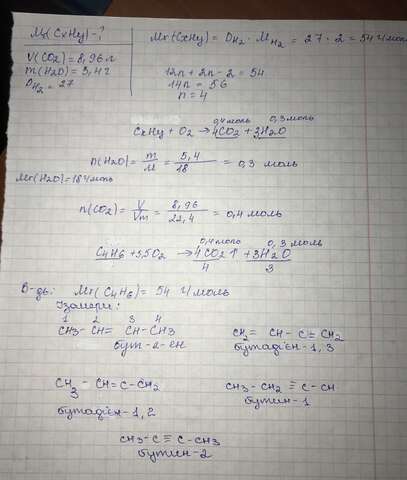 Mr(CxHy)-?
V(CO2)=8,96л
m(H2O)=5,4г
DH2 = 27
Mr(CxHy) = DH2 · MH2 = 27 · 2 = 54 г/моль
12n + 2n - 2 = 54
14n = 56
n = 4
0,4моль 0,3моль
CxHy + O2 → 4CO2 + 3H2O
n(H2O) = m/M = 5,4/18 = 0,3 моль
Mr(H2O)=18г/моль
n(CO2) = V/Vm = 8,96/22,4 = 0,4 моль
0,4моль 0,3моль
C4H6 + 5,5O2 → 4CO2↑ + 3H2O
4 3
В-дь: Mr(C4H6) = 54 г/моль
Ізомери:
1 2 3 4
CH3 - CH = CH - CH3
бут-2-ен
CH2 = CH - C = CH2
бутадієн-1,3
CH3 - CH = C - CH2
бутадієн-1,2
CH3 - CH2 ≡ C - CH
бутин-1
CH3 - C ≡ C - CH3
бутин-2